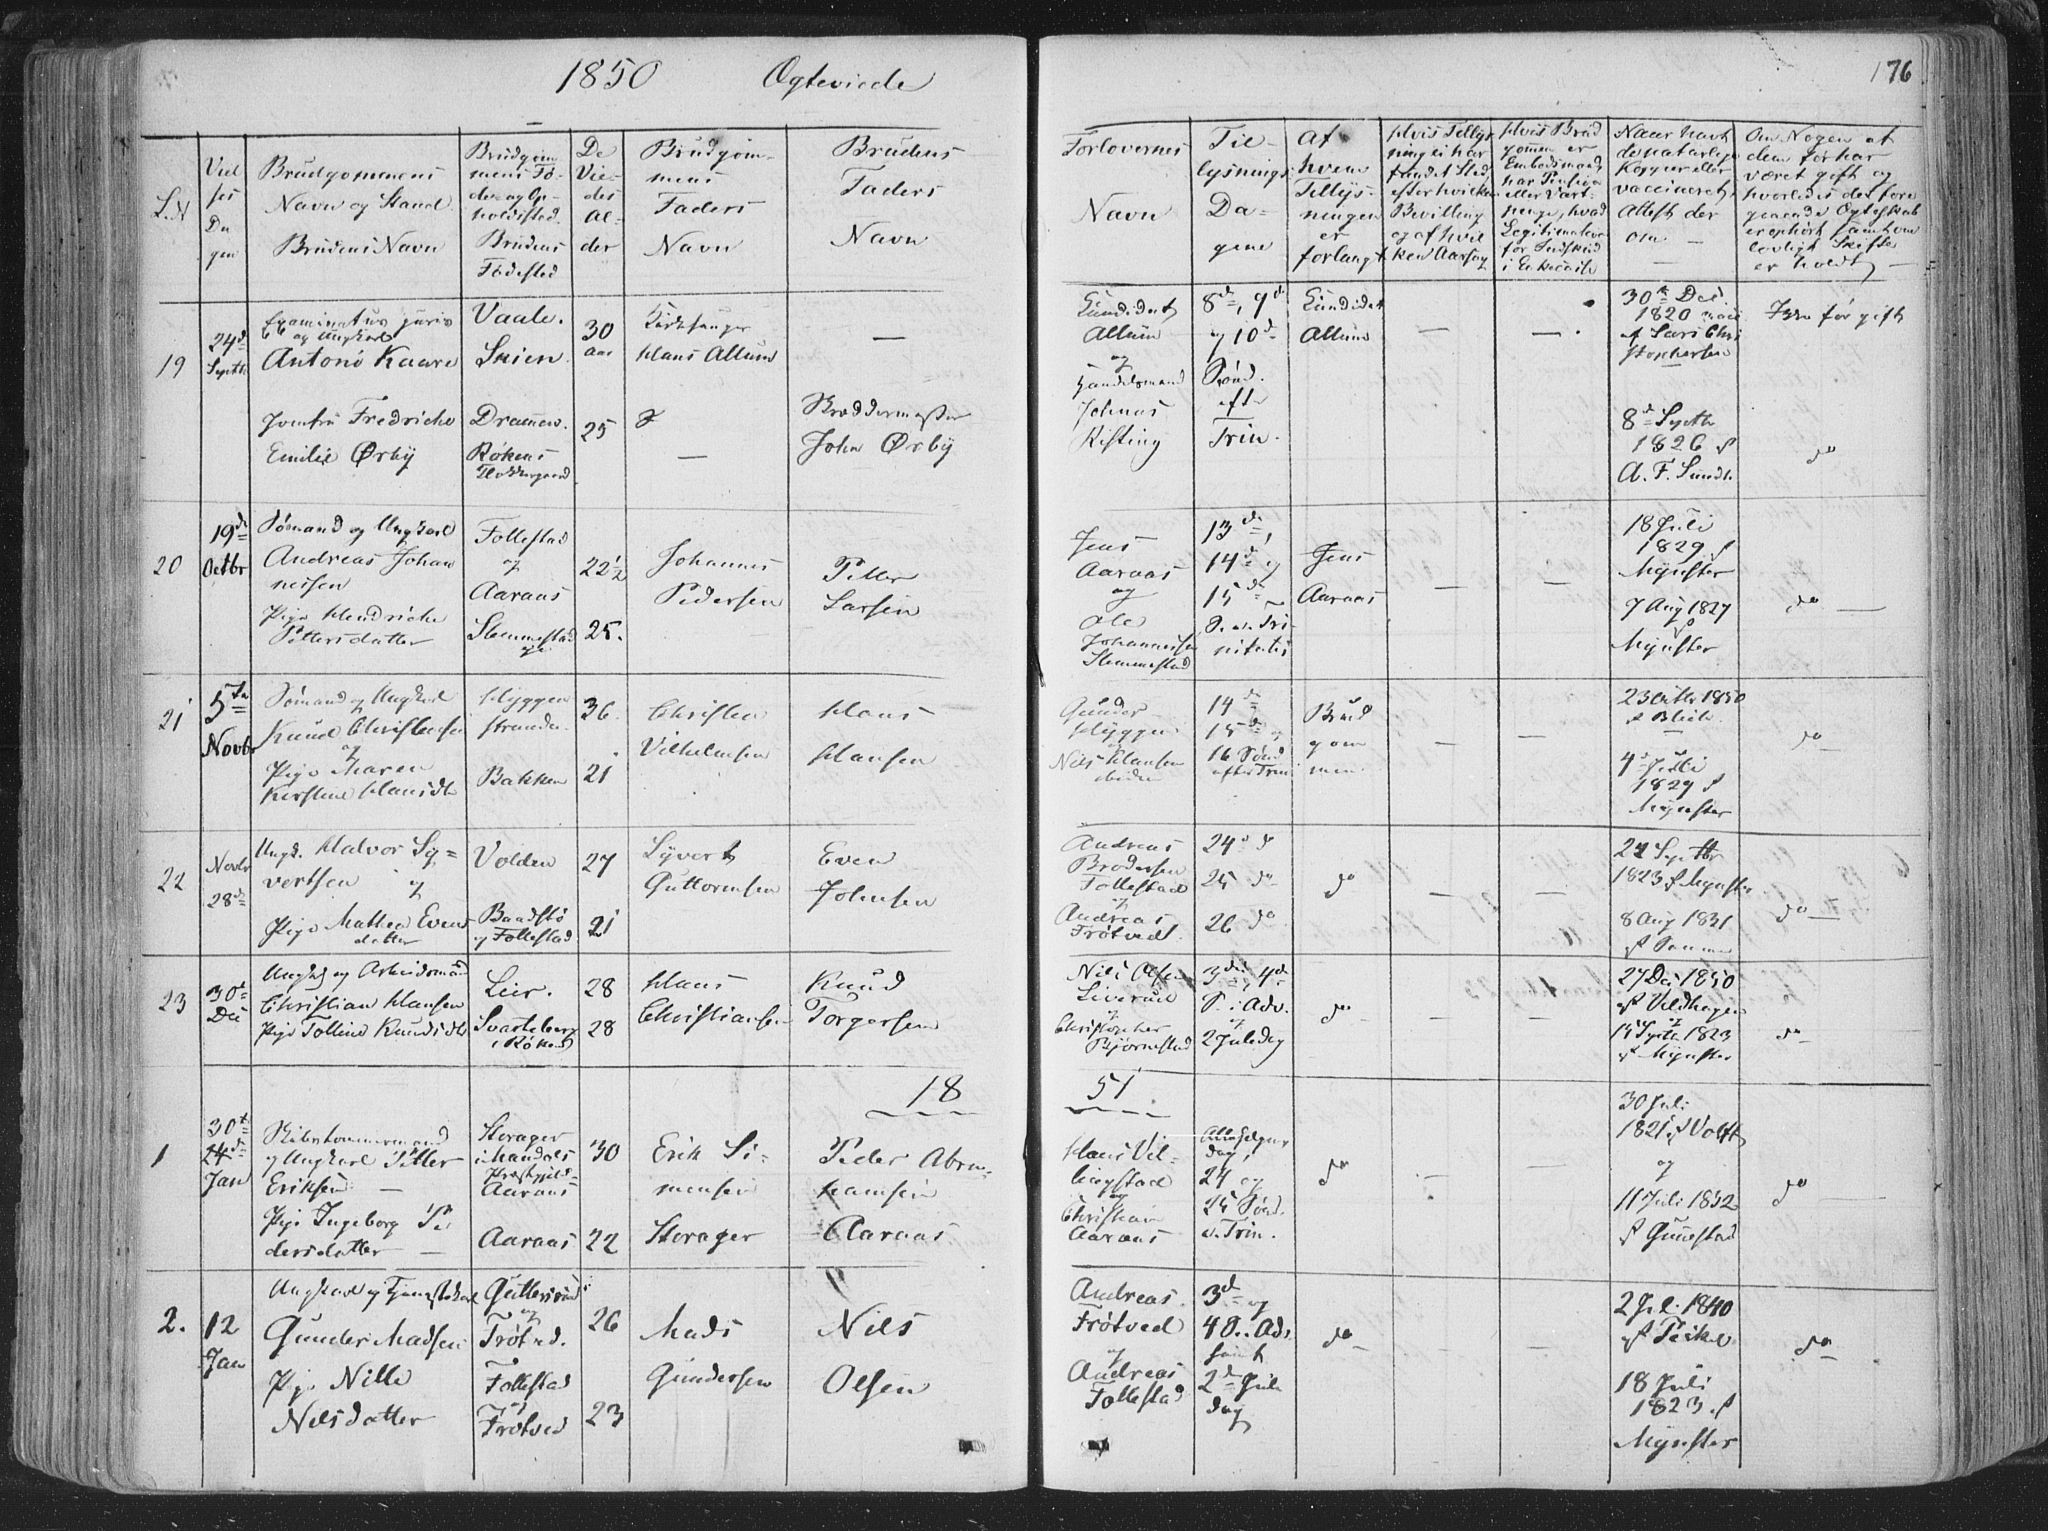 1850 Ogteviede
176
L.N
Viel
ses
Da
gen
Brudgommens
Navn og Stand
Brudens Navn
Brudgom
mens Fø-
de- og Op-
holdssted.
Brudens
Fødested
De
Vie-
des
Al-
der
Brudgom-
mens
Faders
Navn
Brudens
Faders
Navn
Forlovernes
Navn
Til-
lysnings
Da-
gene
Af
hvem
Tillys-
ningen
er
forlangt
Hvis Tillys-
ning ei har
fundet Sted,
efter hvilken
Bevilling
og af hvil
ken Aarsag
Hvis Brud
gommen er
Embedsmand,
i Enkecasse
Naar havt
de naturlige
Kopper eller
vaccineret,
Attest der
om. —
Om Nogen af
dem før har
været gift og
hvorledes det fore
gaaende Ægteskab
er ophørt samt om
lovligt Skifte
er holdt
19
24d
Septb
Examinatus juris
og Ungkarl
Antonè Kaare
Jomfru Fredricke
Emilie Ørby
Vaale.
Skien.
Drammen.
Røkens
30
Aar
25
Hans Allum
—
John Ørby
Allum
og
Handelsmand
Johnas
Kisting
8de, 9de
og 10de
Sønd.
efter
Trin.
Allum
30te Dec
1820
8de Septbr
1826 f
A. F. Sundt.
Ingen før gift
do
20
19de
Octbr
Sømand og Ungkarl
Andreas Johan
nessen
Pige Hendricke
Pettersdatter
Follestad
og
Aaraas
Slemmestad
22½
25.
Johannes
Pedersen
Petter
Larsen
Jens
Aaraas
og
Ole
Johannessen
Slemmestad
13de,
14de og
15de
S. e. Tri-
nitatis
Jens
Aaraas
18 Juli
1829 f
Mynster
7 Aug 1827
f
Mynster
do
21
5te
Novbr
Sømand og Ungkarl
Knud Christensen
og
Pige Maren
Kirstine Hansdtr
Hyggen
stranden
Bakken
36.
21
Christen
Vilhelmsen
Hans
Hansen
Gunder
Hyggen
Nils Hansen
14de
15de og
16 Sønd
efter Trin
Brud
gom
men.
23 Octbr 1850
f Blich.
4de Juli
1829 f
Mynster
do
22
Novbr
28de
Ungk. Halvor Sy-
vertsen og
Pige Mathea Evens
datter
Volden
Baadstø
og Follestad
27
21
Syvert
Guttormsen
Even
Johnsen
Andreas
Brodersen
Follestad
og
Andreas
Frøtvedt.
24de do
25 do
26 do
do
22 Septbr
1823 f Mynster
8 Aug 1831
do
23
30te
Dec
Ungkarl og Arbeidsmand
Christian Hansen
Pige Tolline Knudsdtr
Leir.
Svarteberg
i Røken
28
28
Hans
Christiansen
Knud
Torgersen
Nils Olsen
Liverud
og
Christopher
Bjørnestad
3die, 4de
S. i Adv.
og
2 Juledag
do
27 Dec 1850
f Veldhagen
og
14 Septb 1823
f Mynster
do
18
51
1
30te
24de
Jan
og Ungkarl Petter
Eriksen —
Pige Ingeborg Pe
dersdatter —
Storager
i Mandals
Præstegjeld
Aaraas
Aaraas
30
22
Erik Si-
mensen
Storager
Peder Abra-
hamsen
Aaraas
Hans Vil-
lingstad
og
Christian
Aaraas
Allehelgens
dag,
24 og
25 Sønd.
e. Trin.
do
30 Juli
1821 f Voldt
og
11 Juli 1832
f Gunestad
do
2.
12
Jan
Ungkarl og Tjenestekarl
Gunder Madsen
Pige Nille
Nilsdatter
Guttersrud
og
Frøtved.
Follestad
og
Frøtved
26
23
Mads
Gundersen
Nils
Olsen
Andreas
Frøtved
og
Andreas
Follestad
3de og
4 S. i Adv
samt
2de Jule
dag
do
2 Jul. 1840
18 Juli
1823 f
Mynster
do